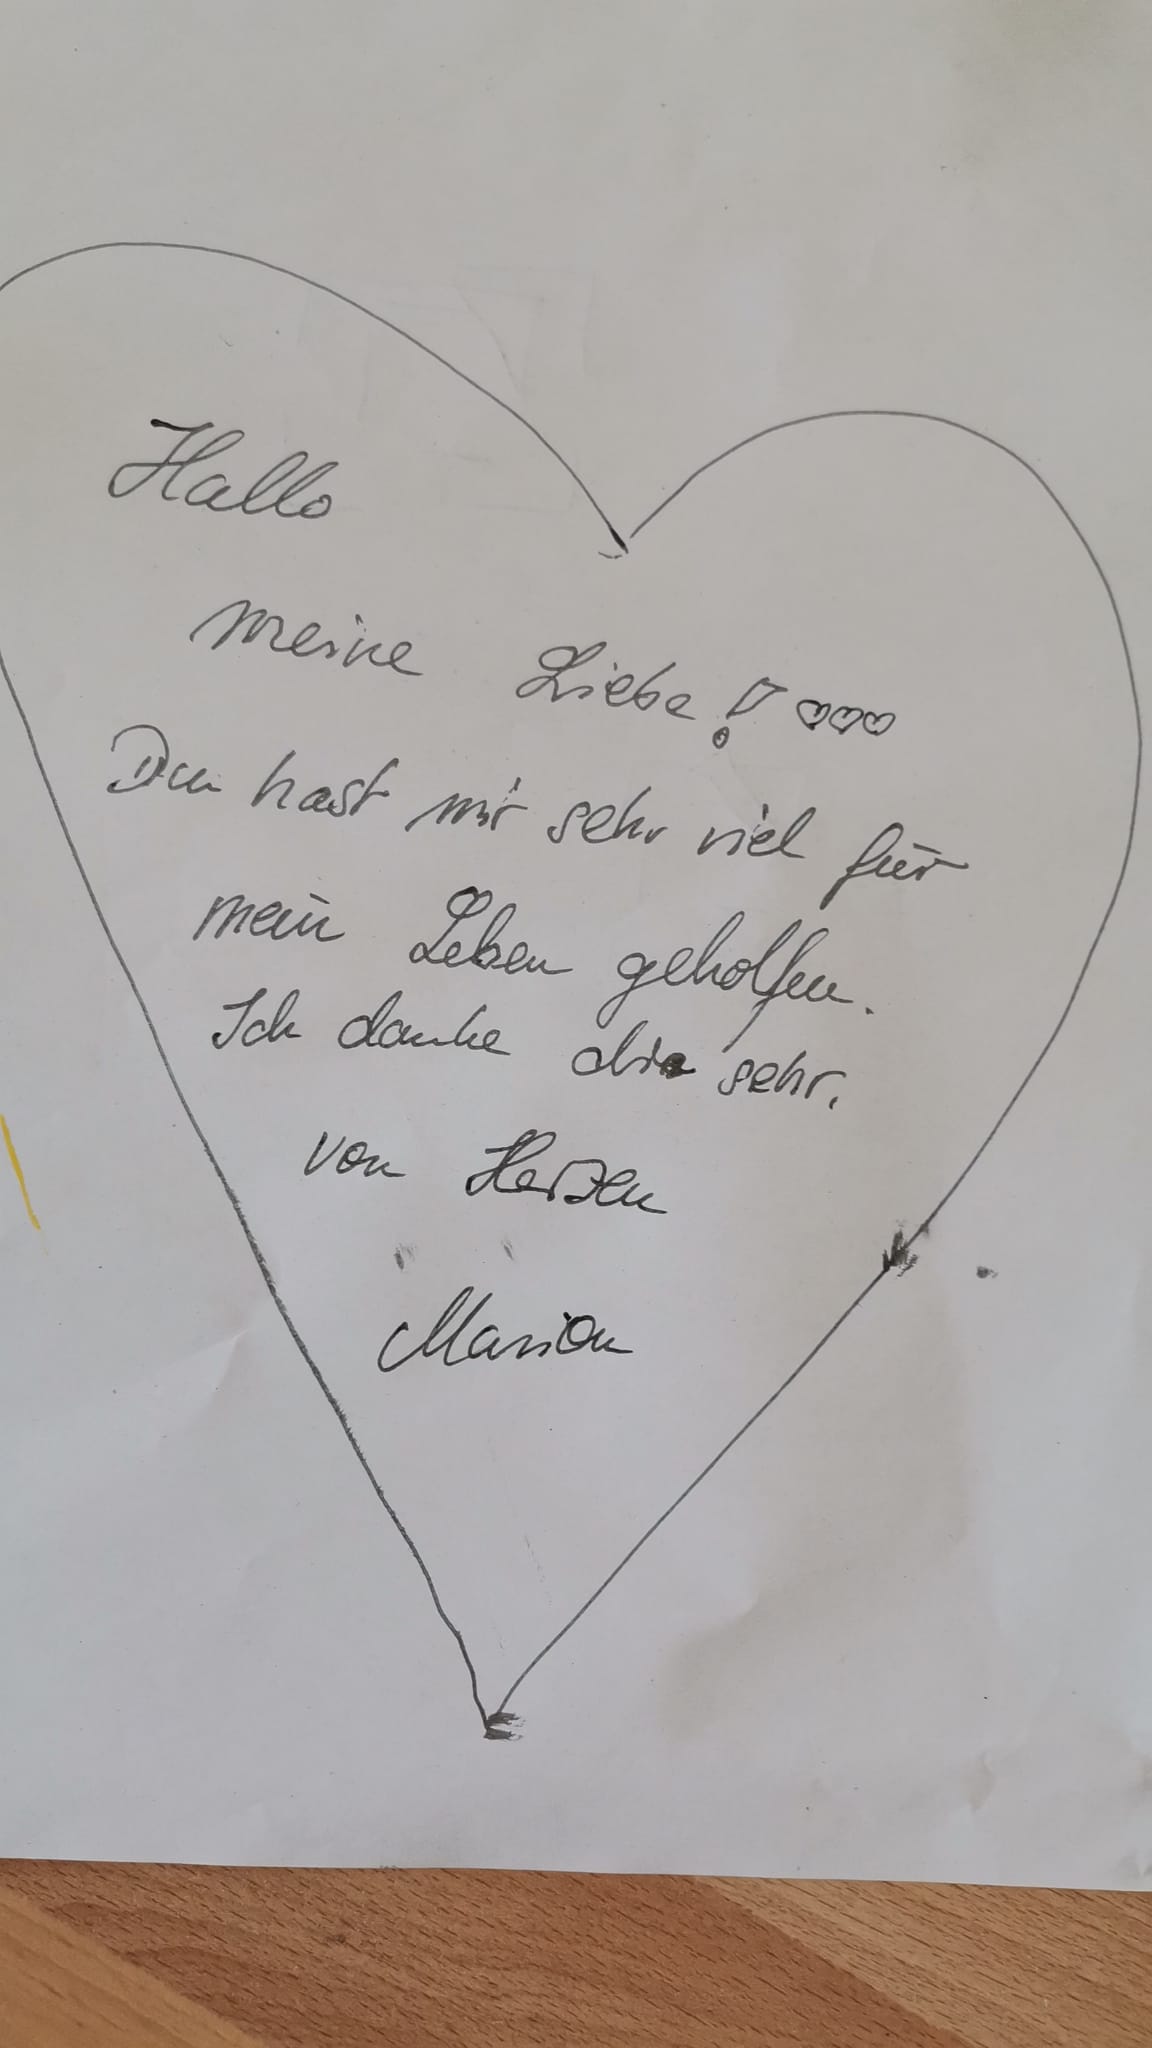 Hallo
meine Liebe! ♡♡♡
Du hast mir sehr viel für
mein Leben geholfen.
Ich danke dir sehr.
von Herzen
Marion